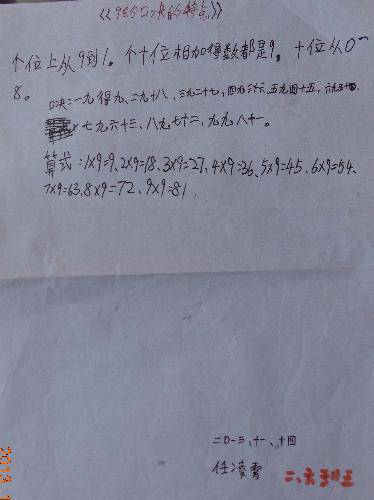 《9的口诀的特点》
个位上从9到1。个十位相加得数都是9。十位从0～
8。
口决:一九得九、二九十八、三九二十七，四九三十六、五九四十五、六九五十四、
七九六十三、八九七十二、九九八十一。
算式:1×9=9、2×9=18、3×9=27、4×9=36、5×9=45、6×9=54、
7×9=63、8×9=72、9×9=81.
二0一三、十一、十四
任凌霄
二、六班王